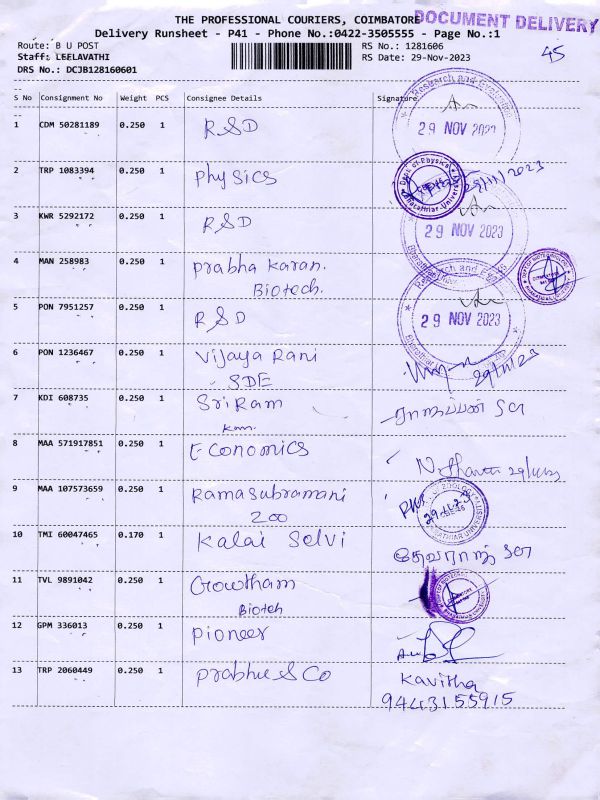 THE PROFESSIONAL COURIERS, COIMBATORE
DOCUMENT DELIVERY
Delivery Runsheet - P41 - Phone No.:0422-3505555 - Page No.:1
Route: B U POST
RS No.: 1281606
45
Staff: LEELAVATHI
RS Date: 29-Nov-2023
DRS No.: DCJB128160601
S No Consignment No Weight PCS Consignee Details Signature
1 CDM 50281189 0.250 1 RSD
29 NOV 2023
2 TRP 1083394 0.250 1 Physics
Dept of Physics
29/11/2023
3 KWR 5292172 0.250 1 RSD
29 NOV 2023
4 MAN 258983 0.250 1 Prabha Karan.
Biotech.
5 PON 7951257 0.250 1 RSD
29 NOV 2023
6 PON 1236467 0.250 1 Vijaya Rani
SDE
29/11/23
7 KDI 608735 0.250 1 SriRam
8 MAA 571917851 0.250 1 Economics
29/11/23
9 MAA 107573659 0.250 1 Ramasubramani
200
ZOOLOGY
10 TMI 60047465 0.170 1 Kalai Selvi
தேவராஜ்
11 TVL 9891042 0.250 1 Gowtham
Biotech
12 GPM 336013 0.250 1 Pioneer
13 TRP 2060449 0.250 1 Prabhu & Co
Kavitha
9443155915